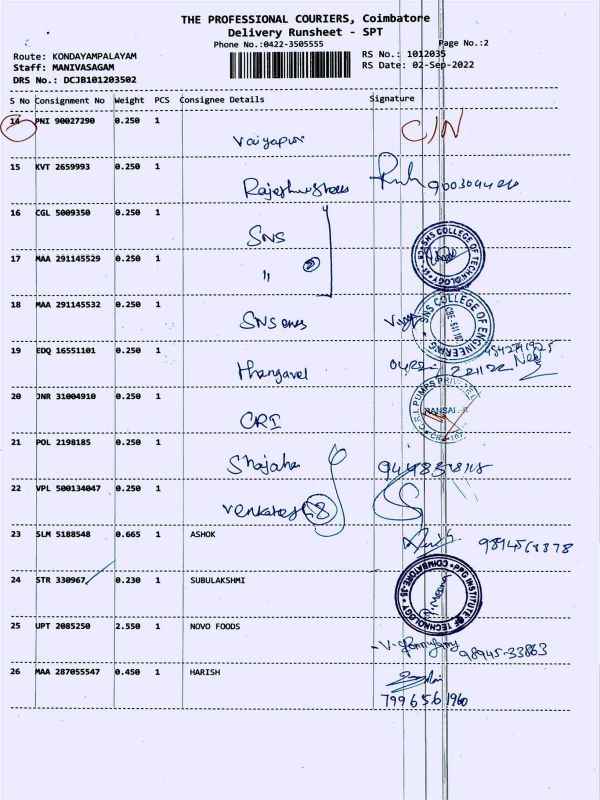 THE PROFESSIONAL COURIERS, Coimbatore
Delivery Runsheet - SPT
Phone No.:0422-3505555
Page No.:2
Route: KONDAYAMPALAYAM
RS No.: 1012035
Staff: MANIVASAGAM
RS Date: 02-Sep-2022
DRS No.: DCJB101203502
S No Consignment No Weight PCS Consignee Details Signature
14 PNI 90027290 0.250 1 C/N
Vaiyapuri
15 KVT 2659993 0.250 1
16 CGL 5009350 0.250 1
SNS
17 MAA 291145529 0.250 1
"
SNS COLLEGE OF TECHNOLOGY
18 MAA 291145532 0.250 1
SNS
SNS COLLEGE OF ENGINEERING
19 EDQ 16551101 0.250 1
Thangavel
20 JNR 31004910 0.250 1
CRI
C.R.I. PUMPS PRIVATE
21 POL 2198185 0.250 1
Shajaha
22 VPL 500134047 0.250 1
Venkatesh
23 SLM 5188548 0.665 1 ASHOK
24 STR 330967 0.230 1 SUBULAKSHMI
PPG INSTITUTE OF TECHNOLOGY COIMBATORE-35
25 UPT 2085250 2.550 1 NOVO FOODS
98945-33863
26 MAA 287055547 0.450 1 HARISH
799 656 1960